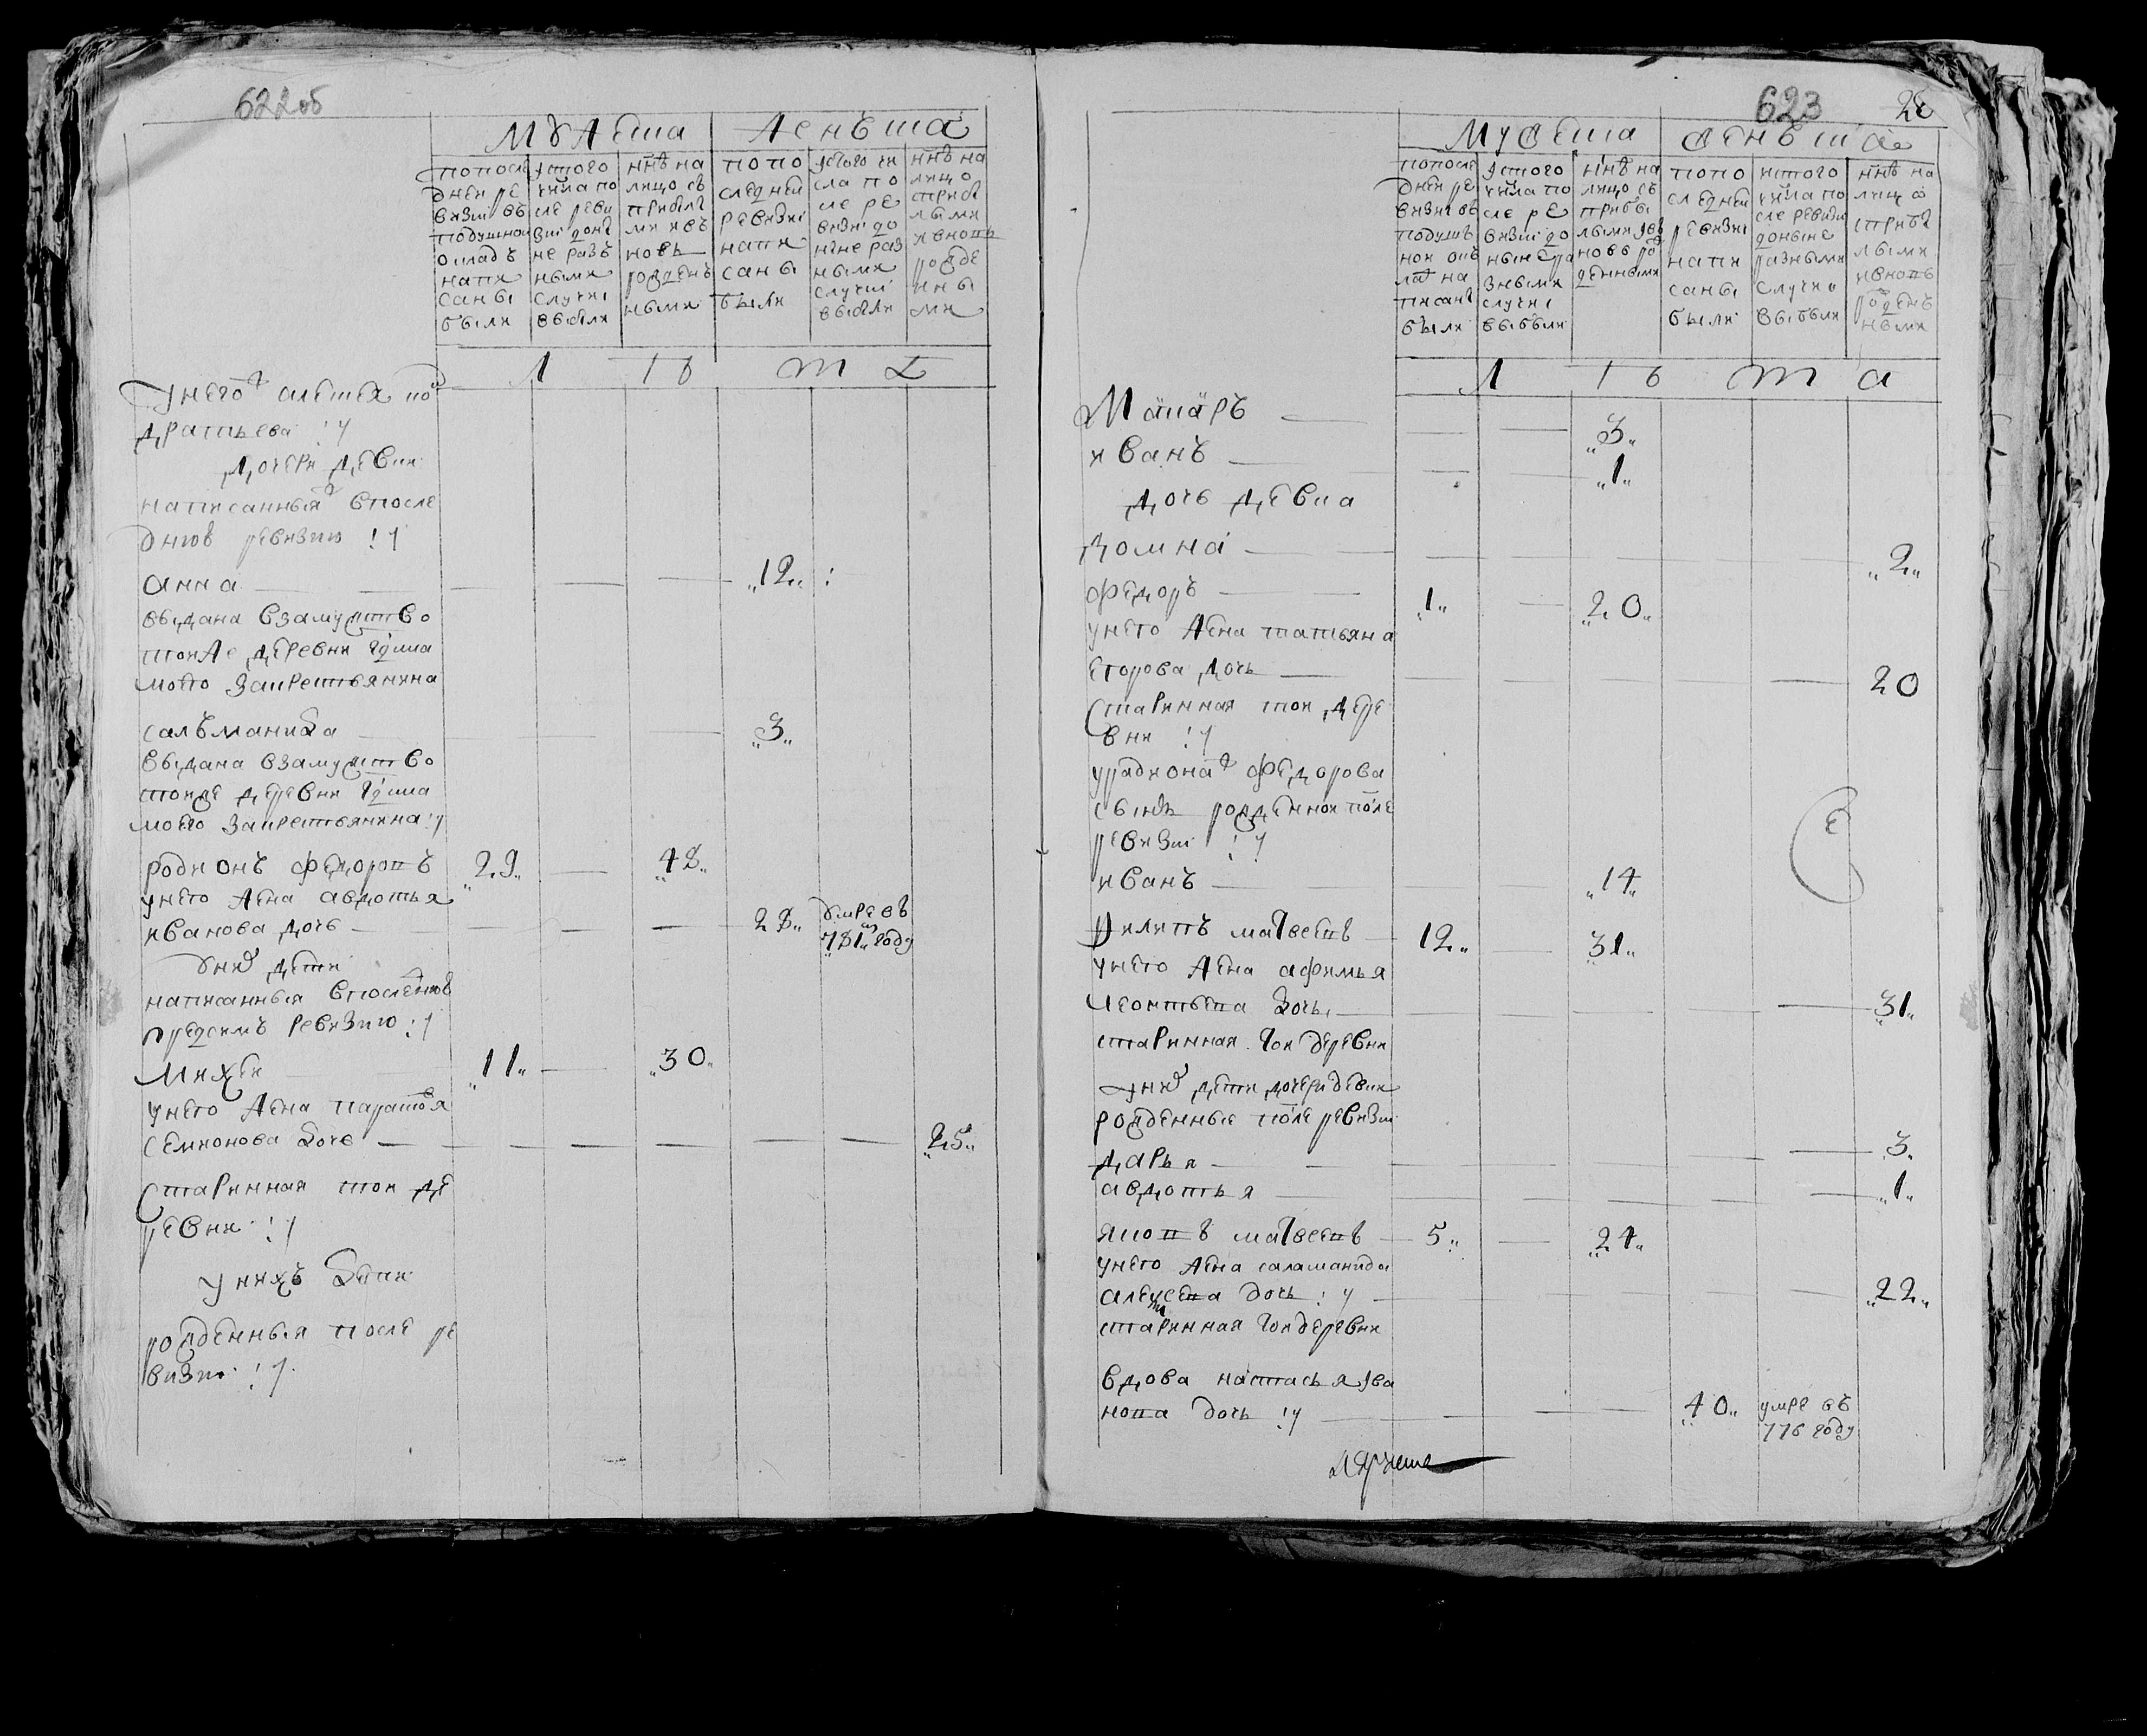 622об
Мужеска женъска
попосле
дней ре
визии въ
подушной
окладъ
напи
саны
были
истого
числа по
сле реви
зии доны
не разъ
ными
случаи
выбыли
ннѣ на
лицо съ
прибылы
ми ивъ
новь
рожденъ
ными
попо
следней
ревизии
напи
саны
были
истого чи
сла по
сле ре
визии до
ныне раз
ными
случаи
выбыли
ннѣ на
лицо
прибы
лыми
ивновь
рожде
нны
ми
Л ѣ т а
дратьева
дочери девки
написанныя впосле
днюю ревизию
анна 12
выдана взамужство
тойже деревни
мого закрестьянина
саломанида 3
выдана взамужство
тойже деревни
мого закрестьянина
родионъ федоровъ 29 48
унего жена авдотья
иванова дочь 28 умре въ
781м году
уних дети
написанныя впоследнюю
ревизию
михей 11 30
унего жена парасковья
семионова дочь 25
старинная той де
ревни
унихъ дети
рожденныя после ре
визии
623 28
Мужеска женъска
попосле
дней ре
визии въ
подушъ
ной окъ
лад на
писаны
были
истого
числа по
сле ре
визии до
ныне ра
зными
случаи
выбыли
ннѣ на
лицо съ
прибы
лыми ивъ
новь ро
жденными
попо
следней
ревизии
напи
саны
были
истого
числа по
сле ревизии
доныне
разными
случаи
выбыли
ннѣ на
лицо
прибы
лыми
ивновь
рожденъ
ными
Л ѣ т а
Макаръ 3
иванъ 1
дочь девка
домна 2
федоръ 1 20
унего жена татьяна
егорова дочь 20
старинная той дере
вни
уродиона федорова
сынъ рожденной после
ревизии
иванъ 14
Филипъ матвеевъ 12 31
унего жена афимья
леонтьева дочь 31
старинная той деревни
уних дети дочери девки
рожденные после ревизии
дарья 3
авдотья 1
яковъ матвеевъ 5 24
унего жена саламанида
алексеева дочь 22
старинная той деревни
вдова настасья ива
нова дочь 40 умре въ
776 году